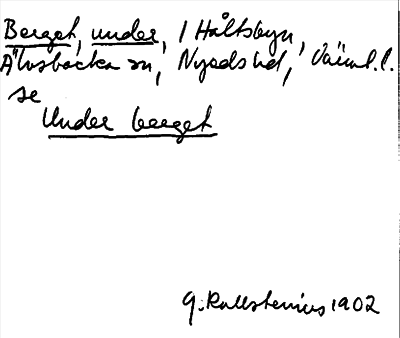 Berget, under, 1 Håltsbyn,
Älvsbacka sn, Nyeds hd, Värml. l.
se
Under berget
G. Kallstenius 1902